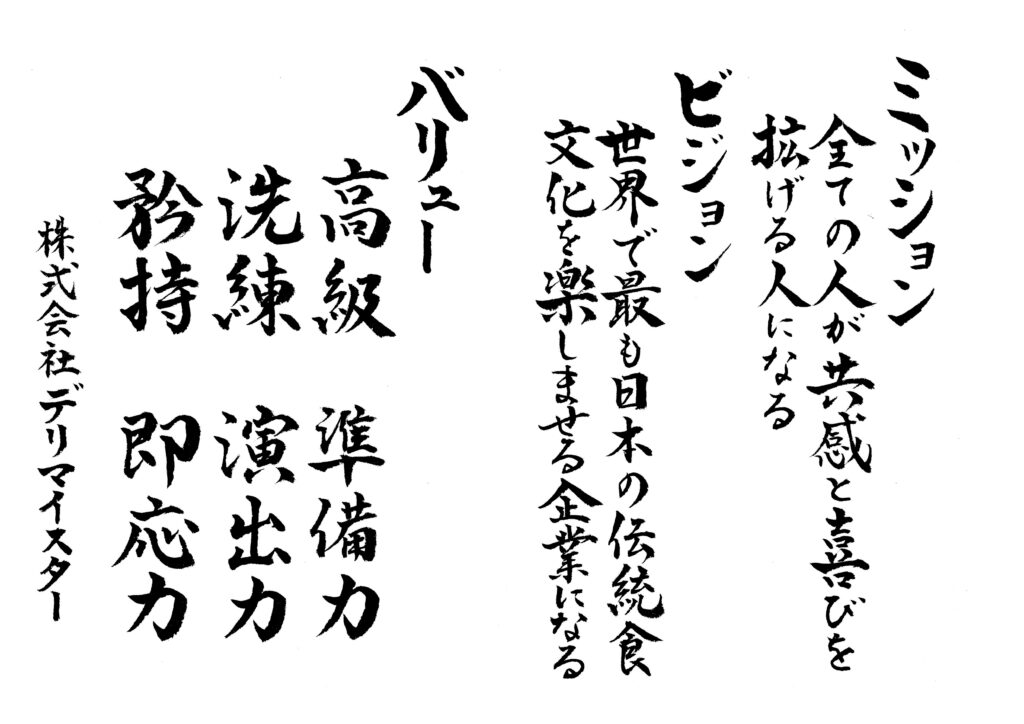 ミッション
全ての人が共感と喜びを
拡げる人になる
ビジョン
世界で最も日本の伝統食
文化を楽しませる企業になる
バリュー
高級 準備力
洗練 演出力
矜持 即応力
株式会社デリマイスター